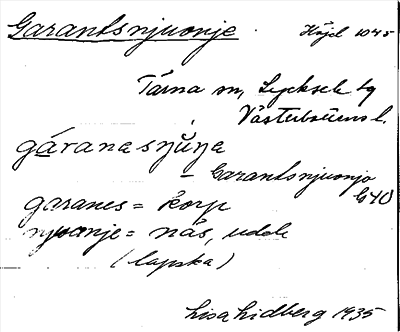 Garantsnjuonje. Höjd 1045
Tärna sn, Lycksele lg
Västerbottens l.
gáranasnṷ̄ńa
– Garantsnjuonjo
C 40
garanes = korp
njuonje = näs, udde
(lapska)
Lisa Lidberg 1935